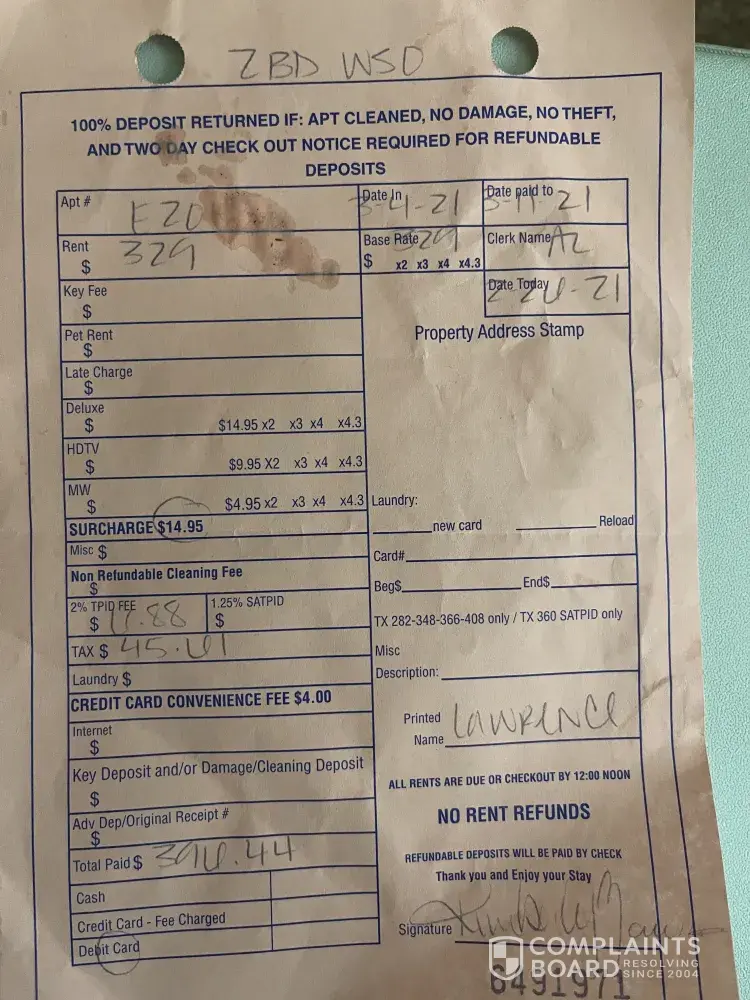 2BD WSO
100% DEPOSIT RETURNED IF: APT CLEANED, NO DAMAGE, NO THEFT,
AND TWO DAY CHECK OUT NOTICE REQUIRED FOR REFUNDABLE
DEPOSITS
Apt # E20
Date In 3-4-21
Date paid to 3-11-21
Rent
$ 329
Base Rate 329
$ x2 x3 x4 x4.3
Clerk Name AZ
Key Fee
$
Date Today 2-26-21
Pet Rent
$
Property Address Stamp
Late Charge
$
Deluxe
$ $14.95 x2 x3 x4 x4.3
HDTV
$ $9.95 X2 x3 x4 x4.3
MW
$ $4.95 x2 x3 x4 x4.3
SURCHARGE $14.95
Misc $
Non Refundable Cleaning Fee
$
2% TPID FEE
$ 6.88
1.25% SATPID
$
TAX $ 45.61
Laundry $
CREDIT CARD CONVENIENCE FEE $4.00
Internet
$
Key Deposit and/or Damage/Cleaning Deposit
$
Adv Dep/Original Receipt #
$
Total Paid $ 396.44
Cash
Credit Card - Fee Charged
Debit Card
Laundry:
new card Reload
Card#
Beg$ End$
TX 282-348-366-408 only / TX 360 SATPID only
Misc
Description:
Printed
Name LAWRENCE
ALL RENTS ARE DUE OR CHECKOUT BY 12:00 NOON
NO RENT REFUNDS
REFUNDABLE DEPOSITS WILL BE PAID BY CHECK
Thank you and Enjoy your Stay
Signature
COMPLAINTS
BOARD RESOLVING
SINCE 2004
6491971